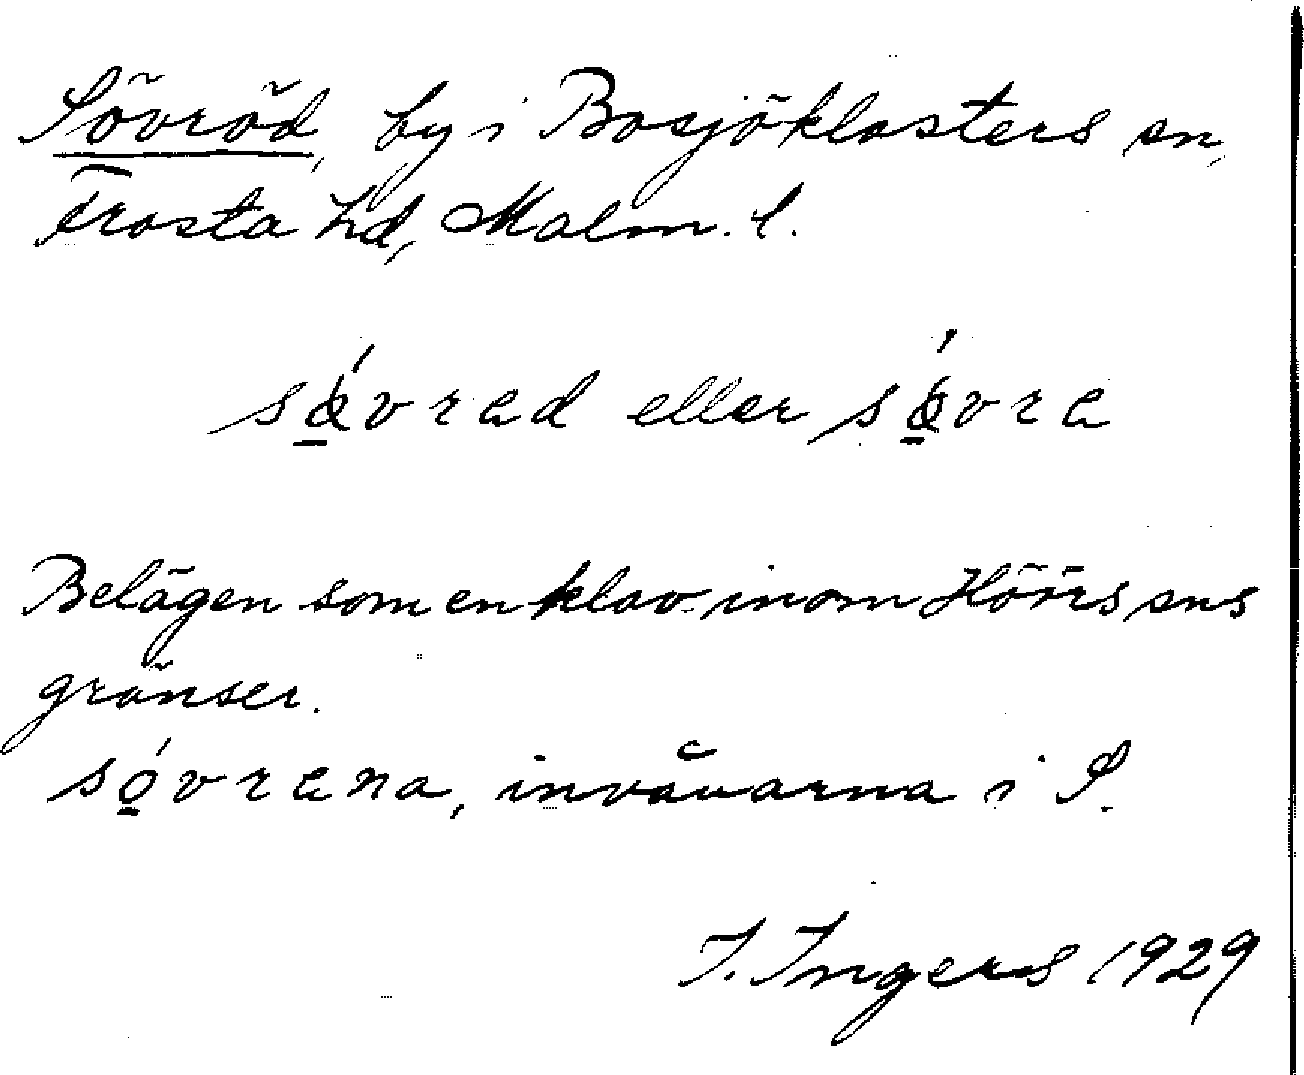 Sövröd, by i Bosjöklosters sn,
Frosta hd, Malm. l.
sǿvrad eller sǿvra
Belägen som enklav inom Höörs sns
gränser.
sǿvrana, invånarna i S.
I. Ingers 1929